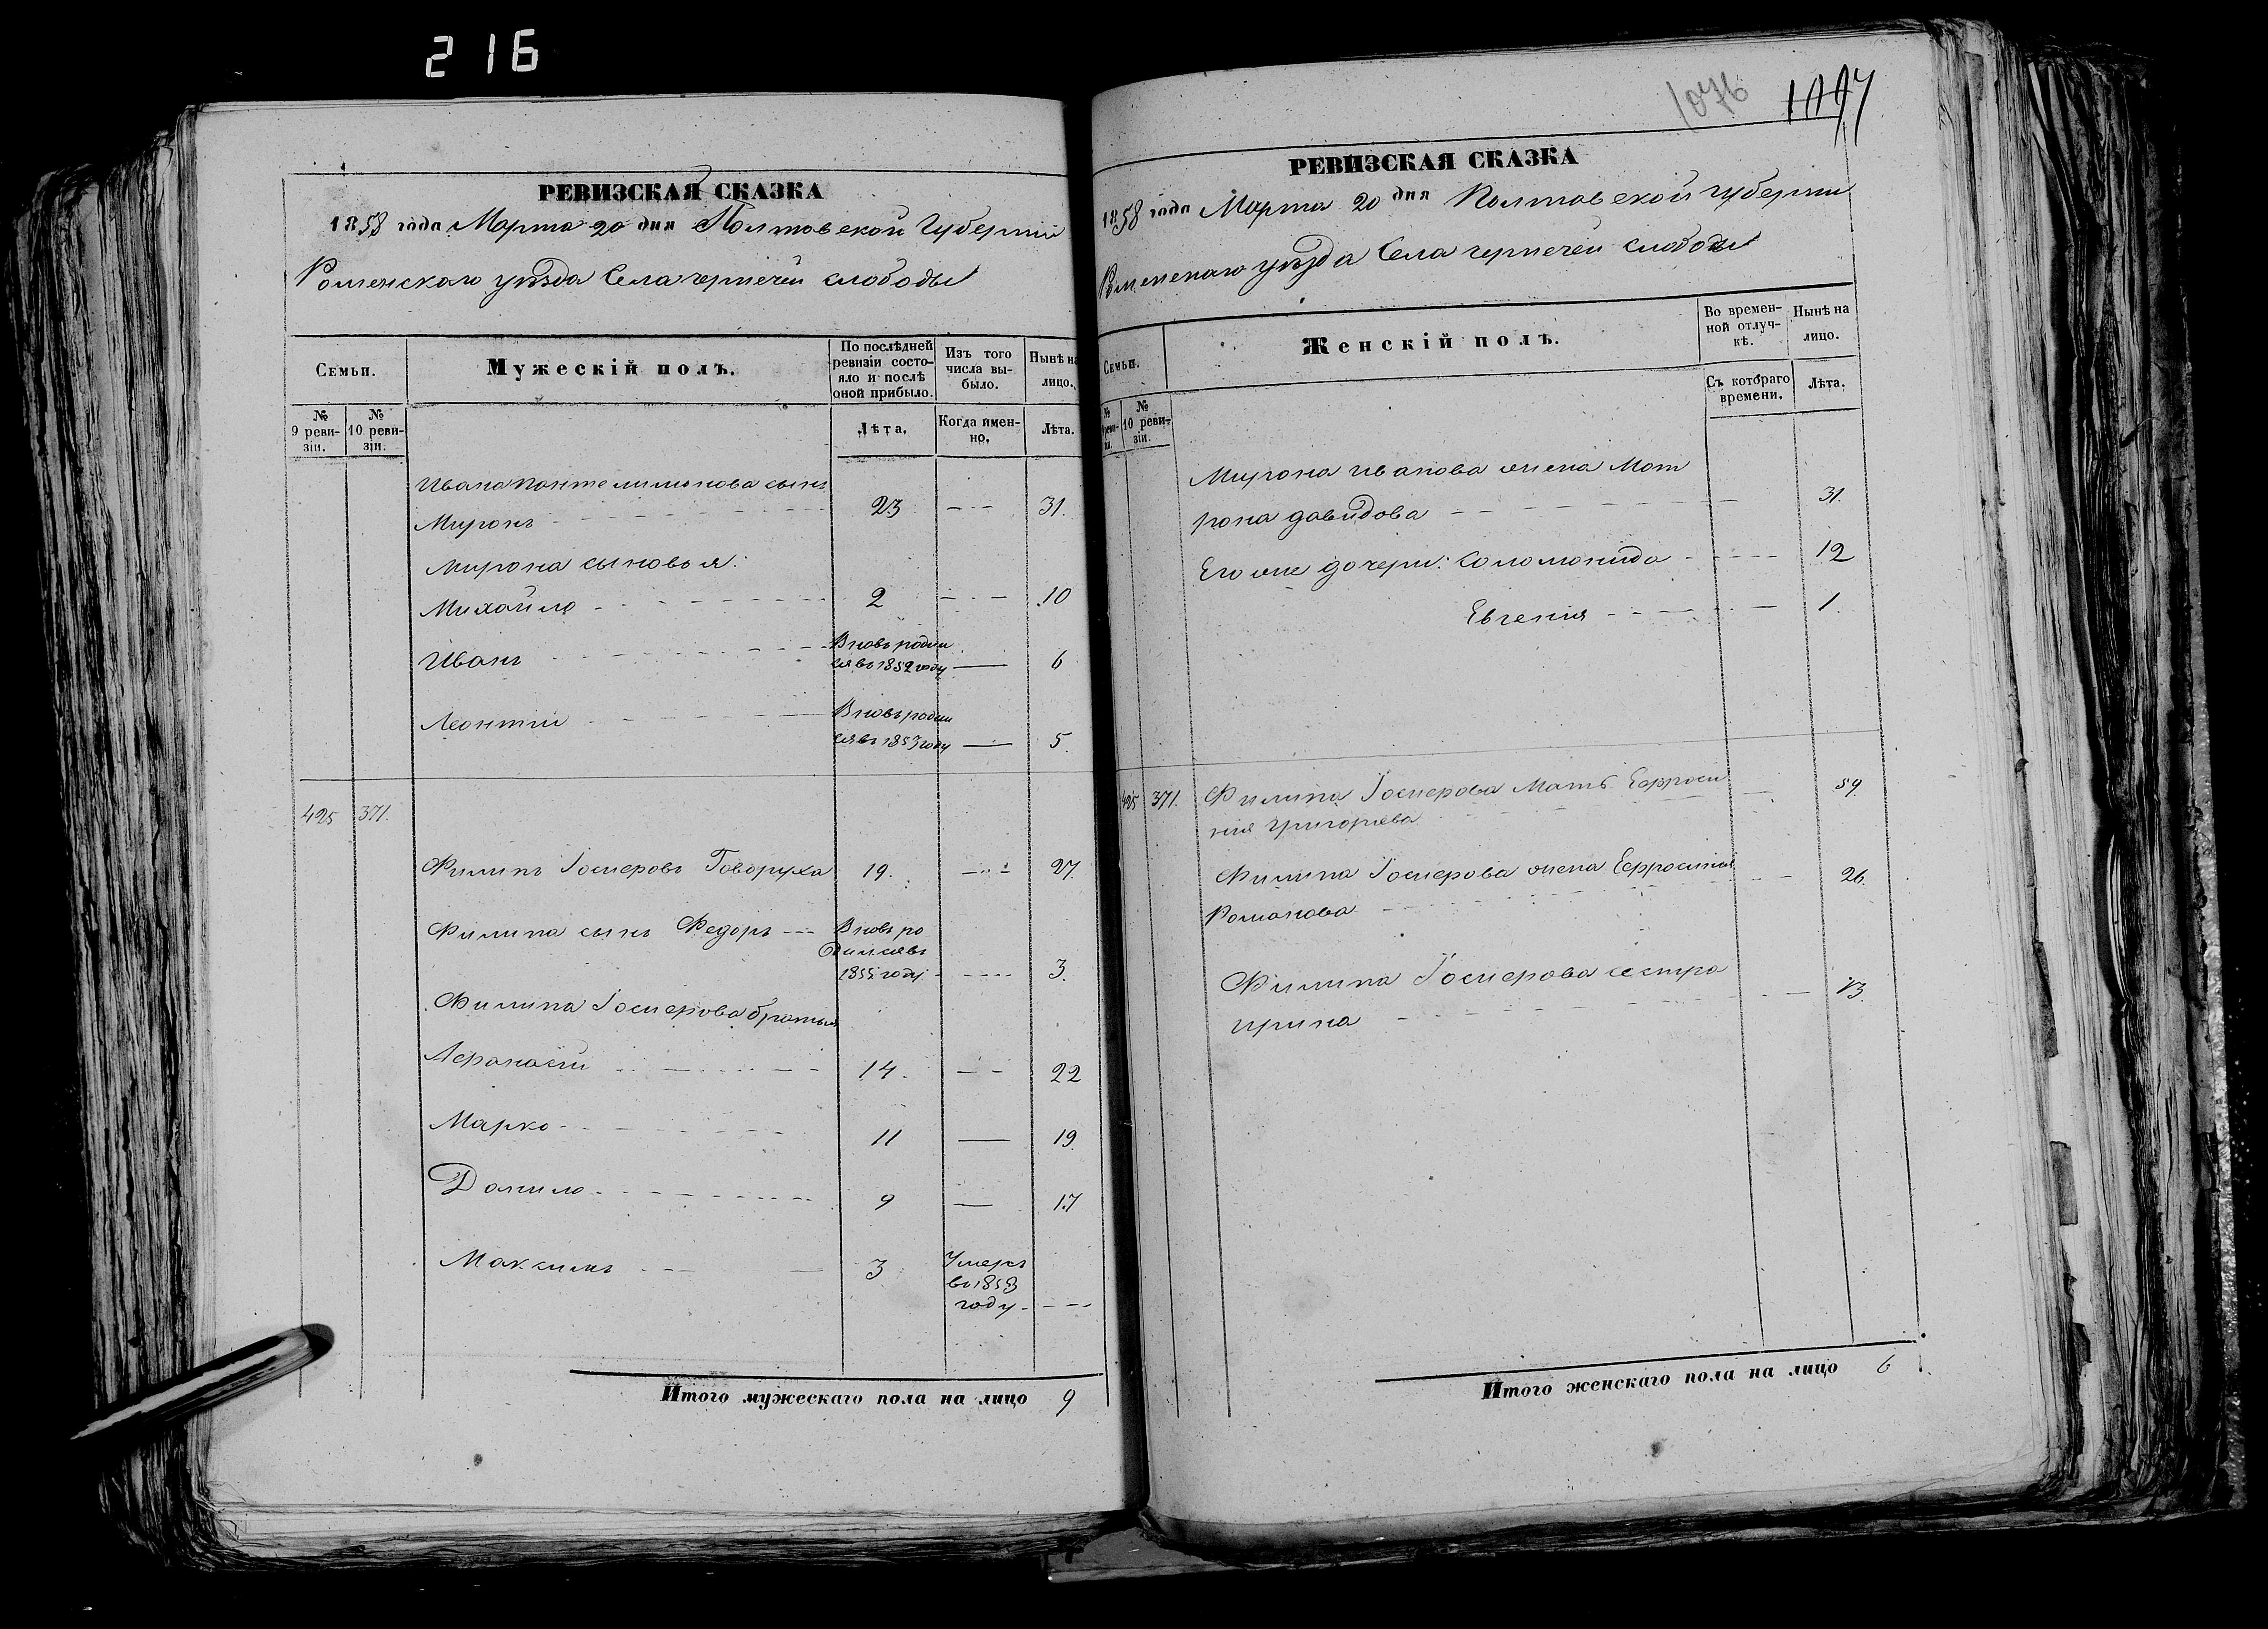 216
РЕВИЗСКАЯ СКАЗКА
1858 года Марта 20 дня Полтавской Губерніи
Роменского уѣзда Села чернечей слободы
Семьи.
Мужескій полъ.
По послѣдней ревизіи состояло и послѣ оной прибыло.
Изъ того числа выбыло.
Нынѣ на лицо.
№ 9 ревизіи.
№ 10 ревизіи.
Лѣта.
Когда именно.
Лѣта.
Ивана Пантелимонова сынъ
Миронъ 23 31.
Мирона сыновья:
Михайло 2 10
Иванъ Вновь родил
ся въ 1852 году 6
Леонтій Вновь родил
ся въ 1853 году 5.
425 371.
Филипъ Іосиеровъ Говоруха 19. 27.
Филипа сынъ Федоръ Вновь ро
дился въ
1855 году 3.
Филипа Іосиерова братья
Афанасій 14. 22
Марко 11 19.
Данило 9 17
Максимъ 3 Умеръ
въ 1853
году
Итого мужескаго пола на лицо 9
1076 1097
РЕВИЗСКАЯ СКАЗКА
1858 года Марта 20 дня Полтавской губерніи
Роменскаго уѣзда Села чернечей слободы
Семьи.
Женскій полъ.
Во временной отлучкѣ.
Нынѣ на лицо.
№ ревизіи.
№ 10 ревизіи.
Съ котораго времени.
Лѣта.
Мирона Иванова жена Мот
рона давидова 31.
Его же дочери: Соломонида 12
Евгенія 1.
425 371. Филипа Іосиерова Мать Ефроси
нія Григорьева 59.
Филипа Іосиерова жена Ефросинія
Романова 26.
Филипа Іосиерова сестра
Ирина 13.
Итого женскаго пола на лицо 6